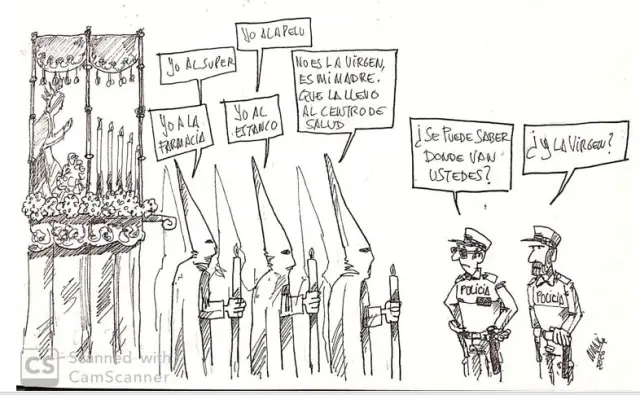 YO AL SUPER
YO A LA PELU
YO A LA
FARMACIA
YO AL
ESTANCO
NO ES LA VIRGEN,
ES MI MADRE.
QUE LA LLEVO
AL CENTRO DE
SALUD
¿SE PUEDE SABER
DONDE VAN
USTEDES?
¿Y LA VIRGEN?
POLICIA
POLICIA
CS Scanned with
CamScanner